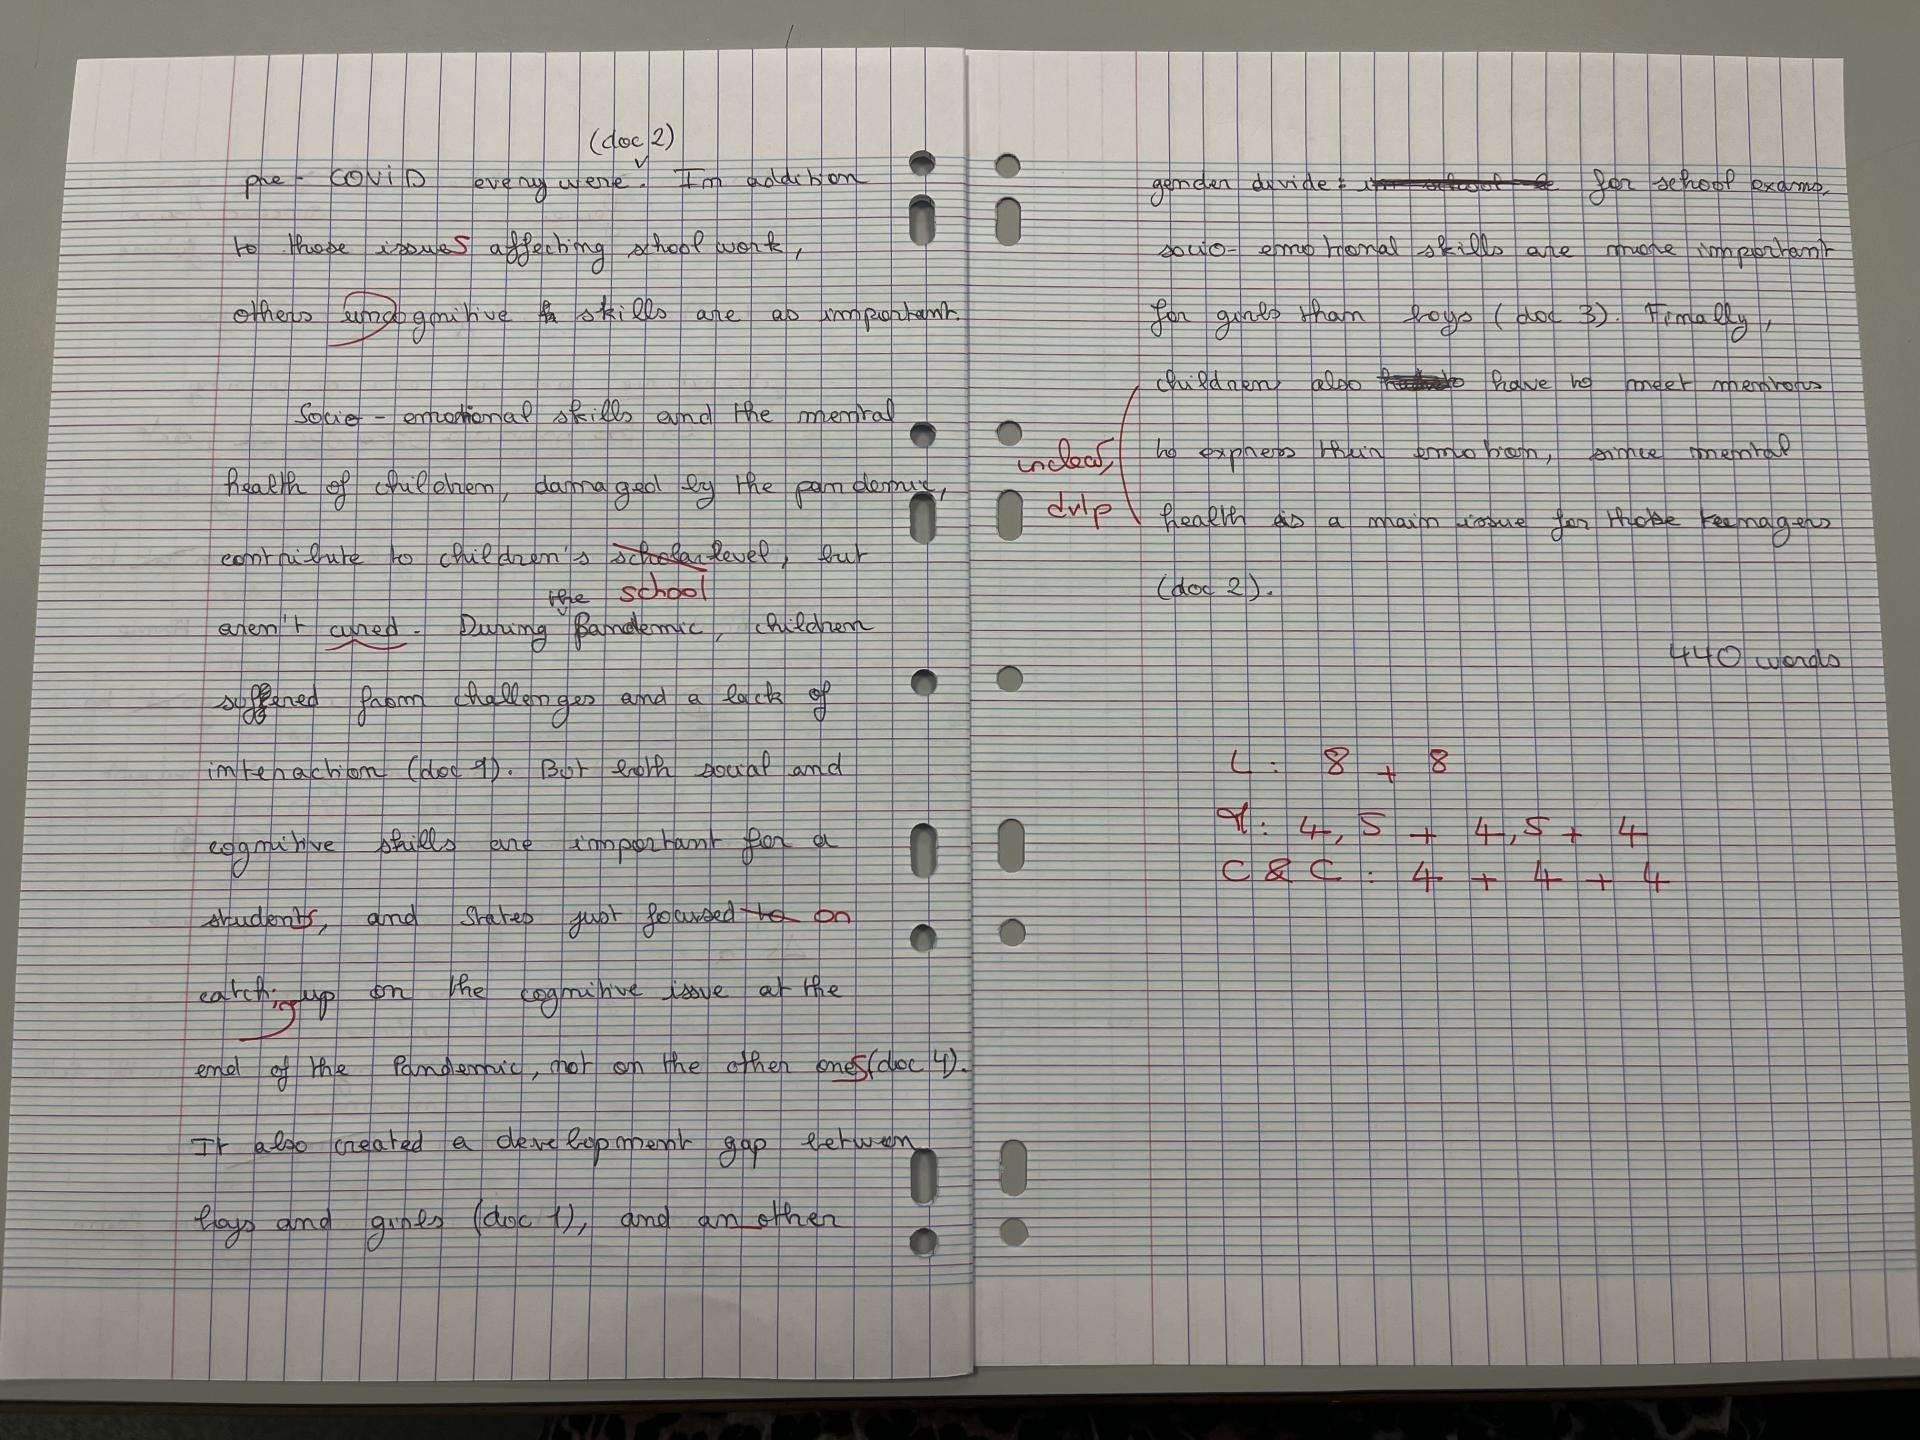 (doc 2)
pre-COVID every were. In addition
to those issues affecting school work,
others uncognitive skills are as important.
Socio-emotional skills and the mental
health of children, damaged by the pandemic,
contribute to children's scholar level, but
the school
aren't cured. During Pandemic, children
suffered from challenges and a lack of
interaction (doc 1). But both social and
cognitive skills are important for a
students, and states just focused to on
catching up on the cognitive issue at the
end of the Pandemic, not on the other ones (doc 4).
It also created a development gap between
boys and girls (doc 1), and an other
gender divide: for school exams,
socio-emotional skills are more important
for girls than boys (doc 3). Finally,
children also have to meet mentors
unclear, to express their emotion, since mental
dvlp health is a main issue for those teenagers
(doc 2).
440 words
L: 8 + 8
4,5 + 4,5 + 4
C & C: 4 + 4 + 4